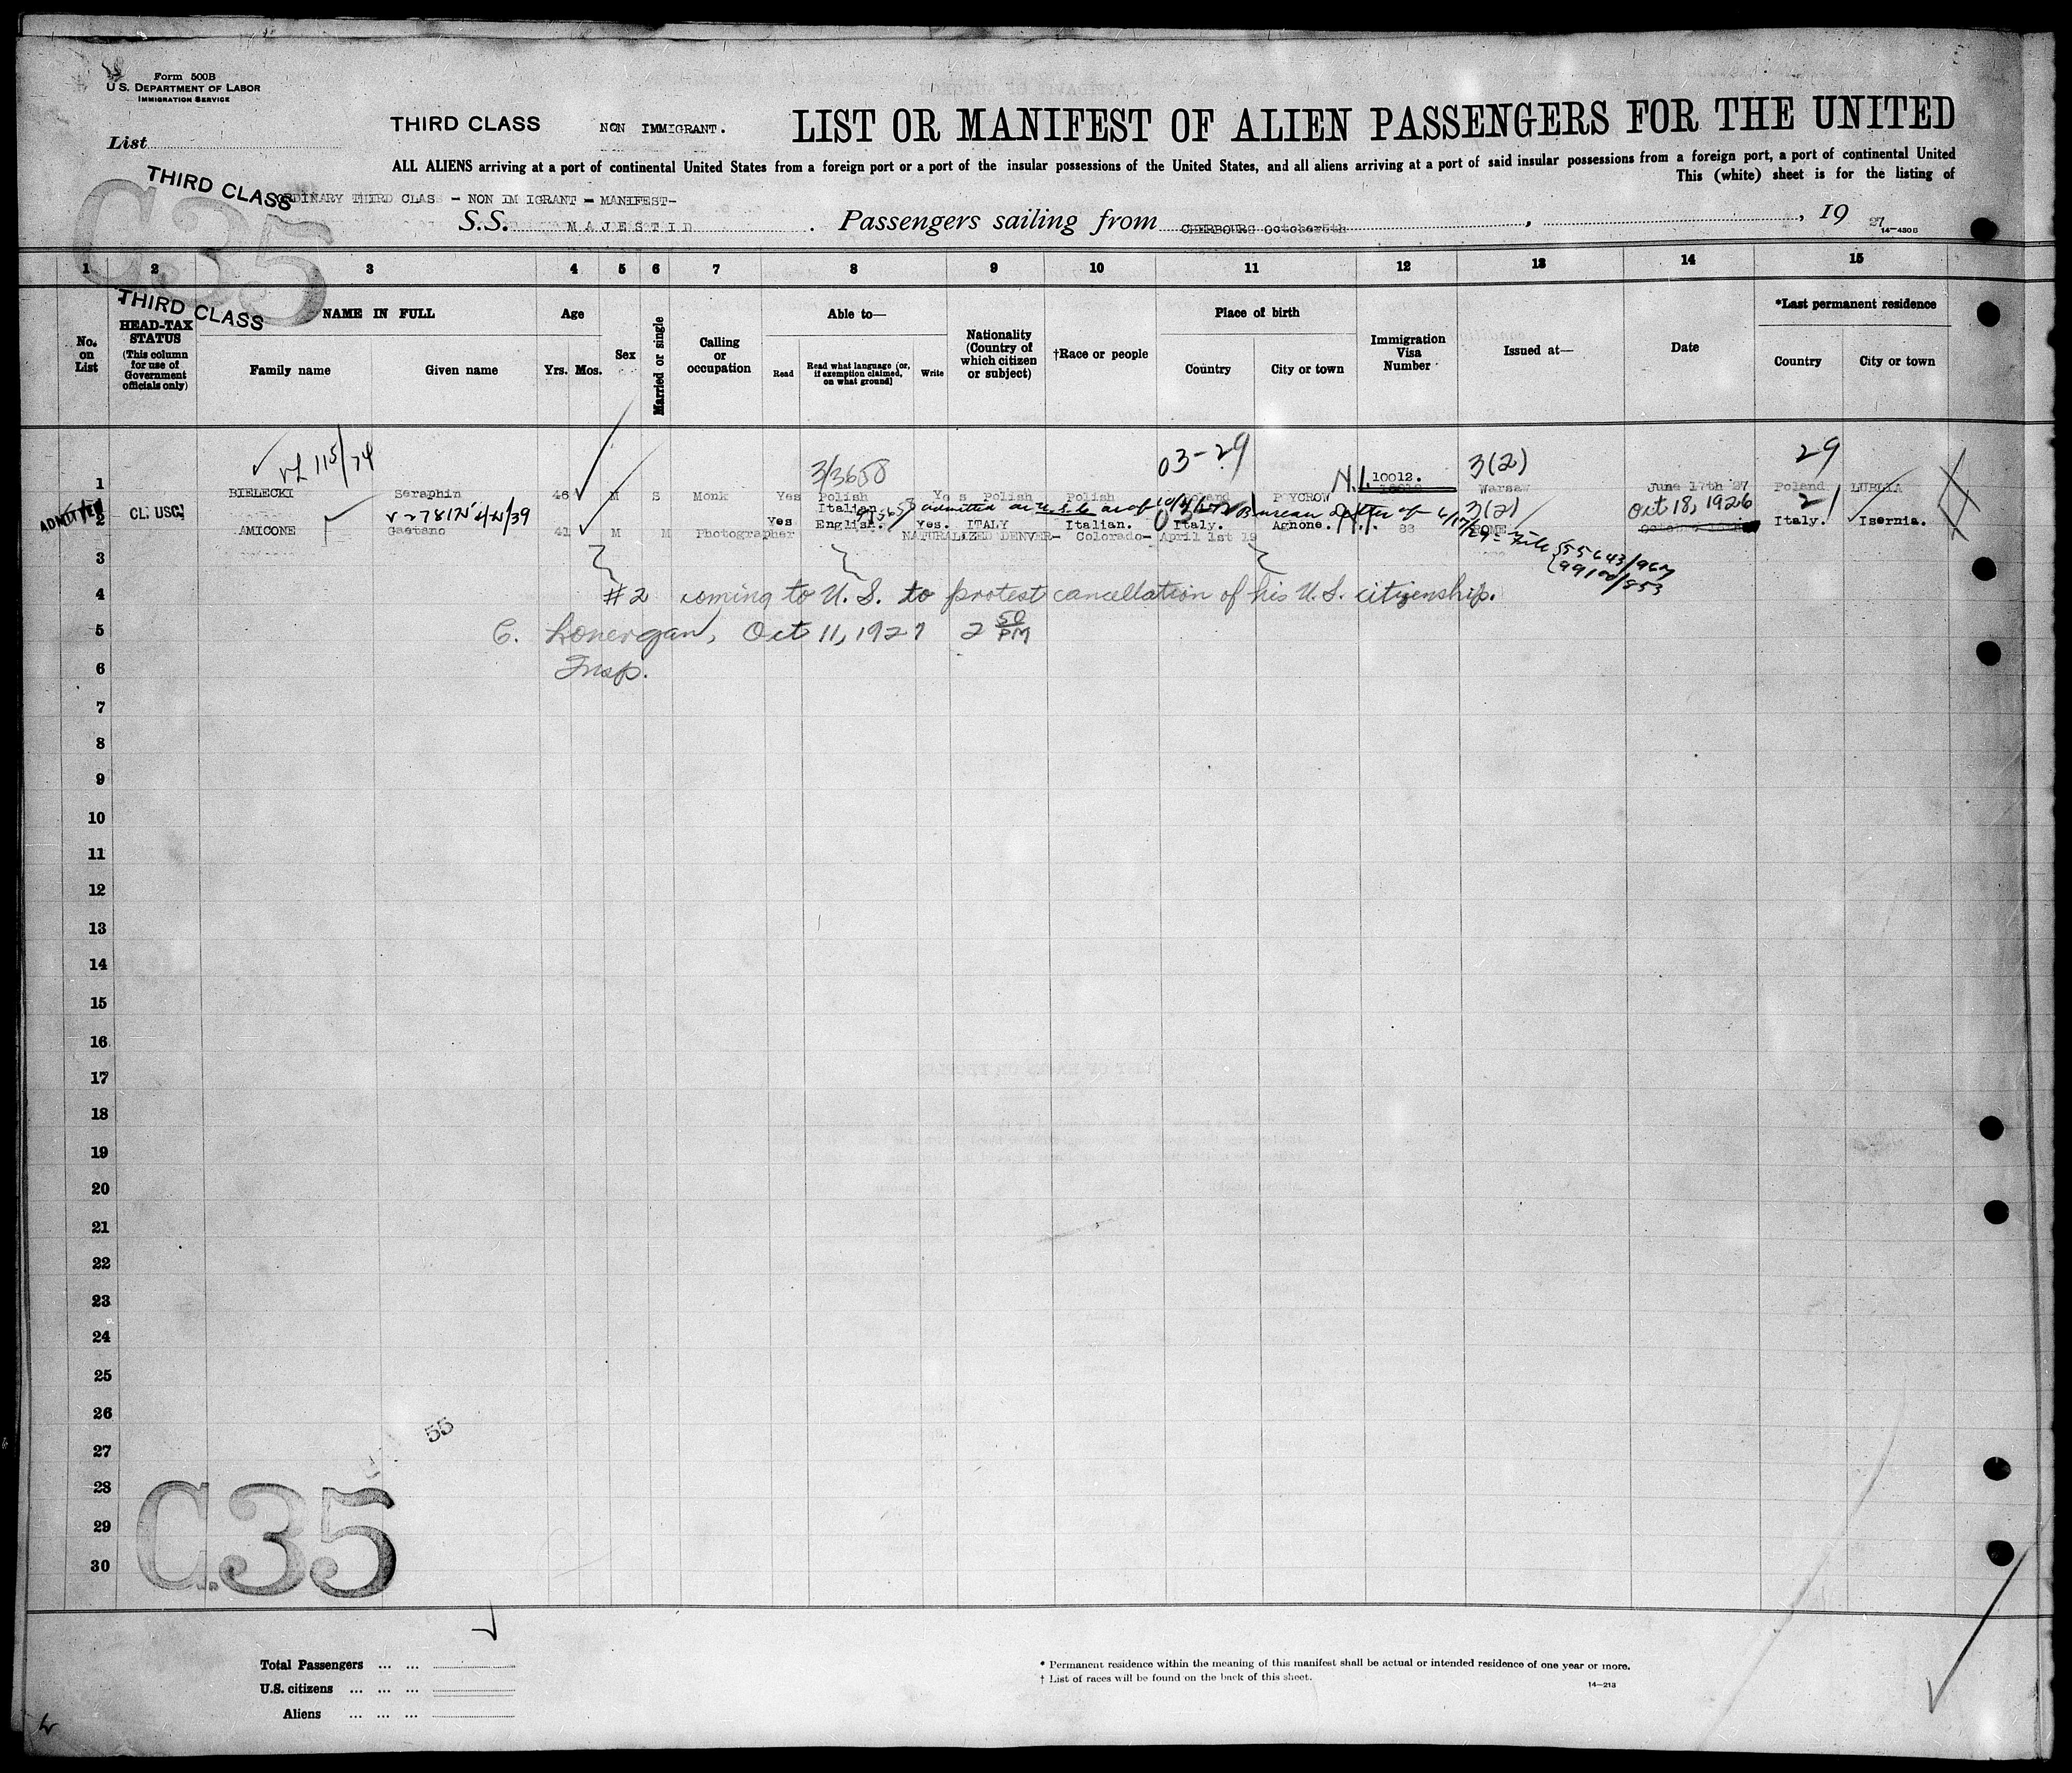 Form 500B
U. S. DEPARTMENT OF LABOR
IMMIGRATION SERVICE
List
THIRD CLASS
NON IMMIGRANT.
LIST OR MANIFEST OF ALIEN PASSENGERS FOR THE UNITED
ALL ALIENS arriving at a port of continental United States from a foreign port or a port of the insular possessions of the United States, and all aliens arriving at a port of said insular possessions from a foreign port, a port of continental United
This (white) sheet is for the listing of
THIRD CLASS
ORDINARY THIRD CLASS - NON IM IGRANT - MANIFEST-
C35
S.S. MAJESTID . Passengers sailing from CHERBOURG October5th , , 19 27
14-430B
1 2 3 4 5 6 7 8 9 10 11 12 13 14 15
THIRD CLASS
No. on List
HEAD-TAX STATUS
(This column for use of Government officials only)
NAME IN FULL
Family name Given name
Age
Yrs. Mos.
Sex
Married or single
Calling or occupation
Able to—
Read
Read what language [or, if exemption claimed, on what ground]
Write
Nationality (Country of which citizen or subject)
†Race or people
Place of birth
Country City or town
Immigration Visa Number
Issued at—
Date
*Last permanent residence
Country City or town
115/74 3/3658 03-29 N.I. 10012. 3(2) 29
1 BIELECKI Seraphin 46 M S Monk Yes Polish Yes Polish Polish Poland Warsaw June 17th '27 Poland
ADMITTED
CL: USC
Italian admitted as U.S.C. as of Bureau letter of 6/17/29 - File 55643/967
99100/853
3(2) Oct 18, 1926 21
2 AMICONE Gaetano 41 M M Photographer Yes English. Yes. ITALY Italian. Italy. Agnone. N.I. 88 ROME Italy. Isernia.
NATURALIZED DENVER- Colorado- April 1st 19
3
4 #2 coming to U. S. to protest cancellation of his U. S. citizenship.
5 C. Lonergan, Oct 11, 1927 2 50 PM
6 Insp.
7
8
9
10
11
12
13
14
15
16
17
18
19
20
21
22
23
24
25
26
55
27
28
29
30
C35
Total Passengers ... ...
U.S. citizens ... ... ...
Aliens ... ... ...
* Permanent residence within the meaning of this manifest shall be actual or intended residence of one year or more.
† List of races will be found on the back of this sheet.
14-213